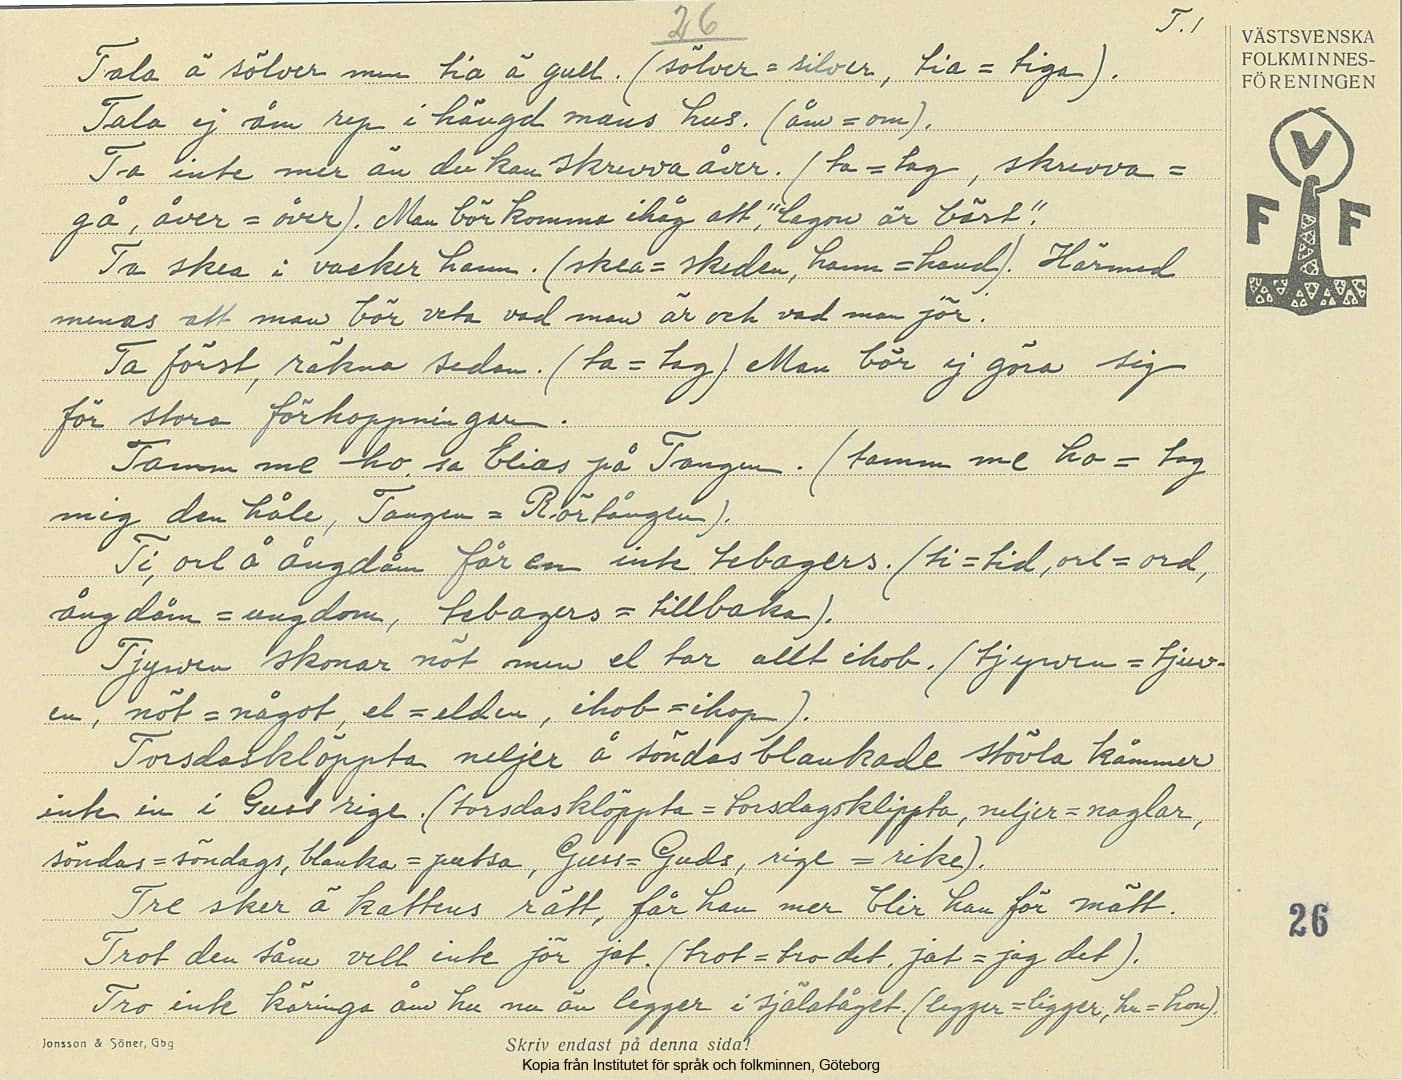 26
T.1
VÄSTSVENSKA
FOLKMINNES-
FÖRENINGEN
V
F F
Tala ä sölver men tia ä gull. (sölver = silver, tia = tiga).
Tala ej åm rep i hängd mans hus. (åm = om).
Ta inte mer än du kan skrevva åver. (ta = tag, skrevva =
gå, åver = över). Man bör komma ihåg att „lagom är bäst".
Ta skea i vacker hann. (skea = skeden, hann = hand). Härmed
menas att man bör veta vad man är och vad man jör.
Ta först, räkna sedan. (ta = tag). Man bör ej göra sig
för stora förhoppningar.
Tamm me ho sa Elias på Tangen. (tamm me ho = tag
mig den håle, Tangen = Rörtången).
Ti, orl å ångdåm får en inte tebagers. (ti = tid, orl = ord,
ångdåm = ungdom, tebagers = tillbaka).
Tjywen skonar nöt men el tar allt ihob. (tjywen = tjuv-
en, nöt = något, el = elden, ihob = ihop).
Torsdasklöppta neljer å söndas blankade stövla kåmmer
inte in i Guss rige. (torsdasklöppta = torsdagsklippta, neljer = naglar,
söndas = söndags, blanka = putsa, Guss = Guds, rige = rike).
Tre sker ä kattens rätt, får han mer blir han för mätt.
Trot den såm vell inte jör jat. (trot = tro det, jat = jag det).
Tro inte käringa åm hu nu än legger i själatåget. (legger = ligger, hu = hon).
26
Jonsson & Söner, Gbg
Skriv endast på denna sida!
Kopia från Institutet för språk och folkminnen, Göteborg